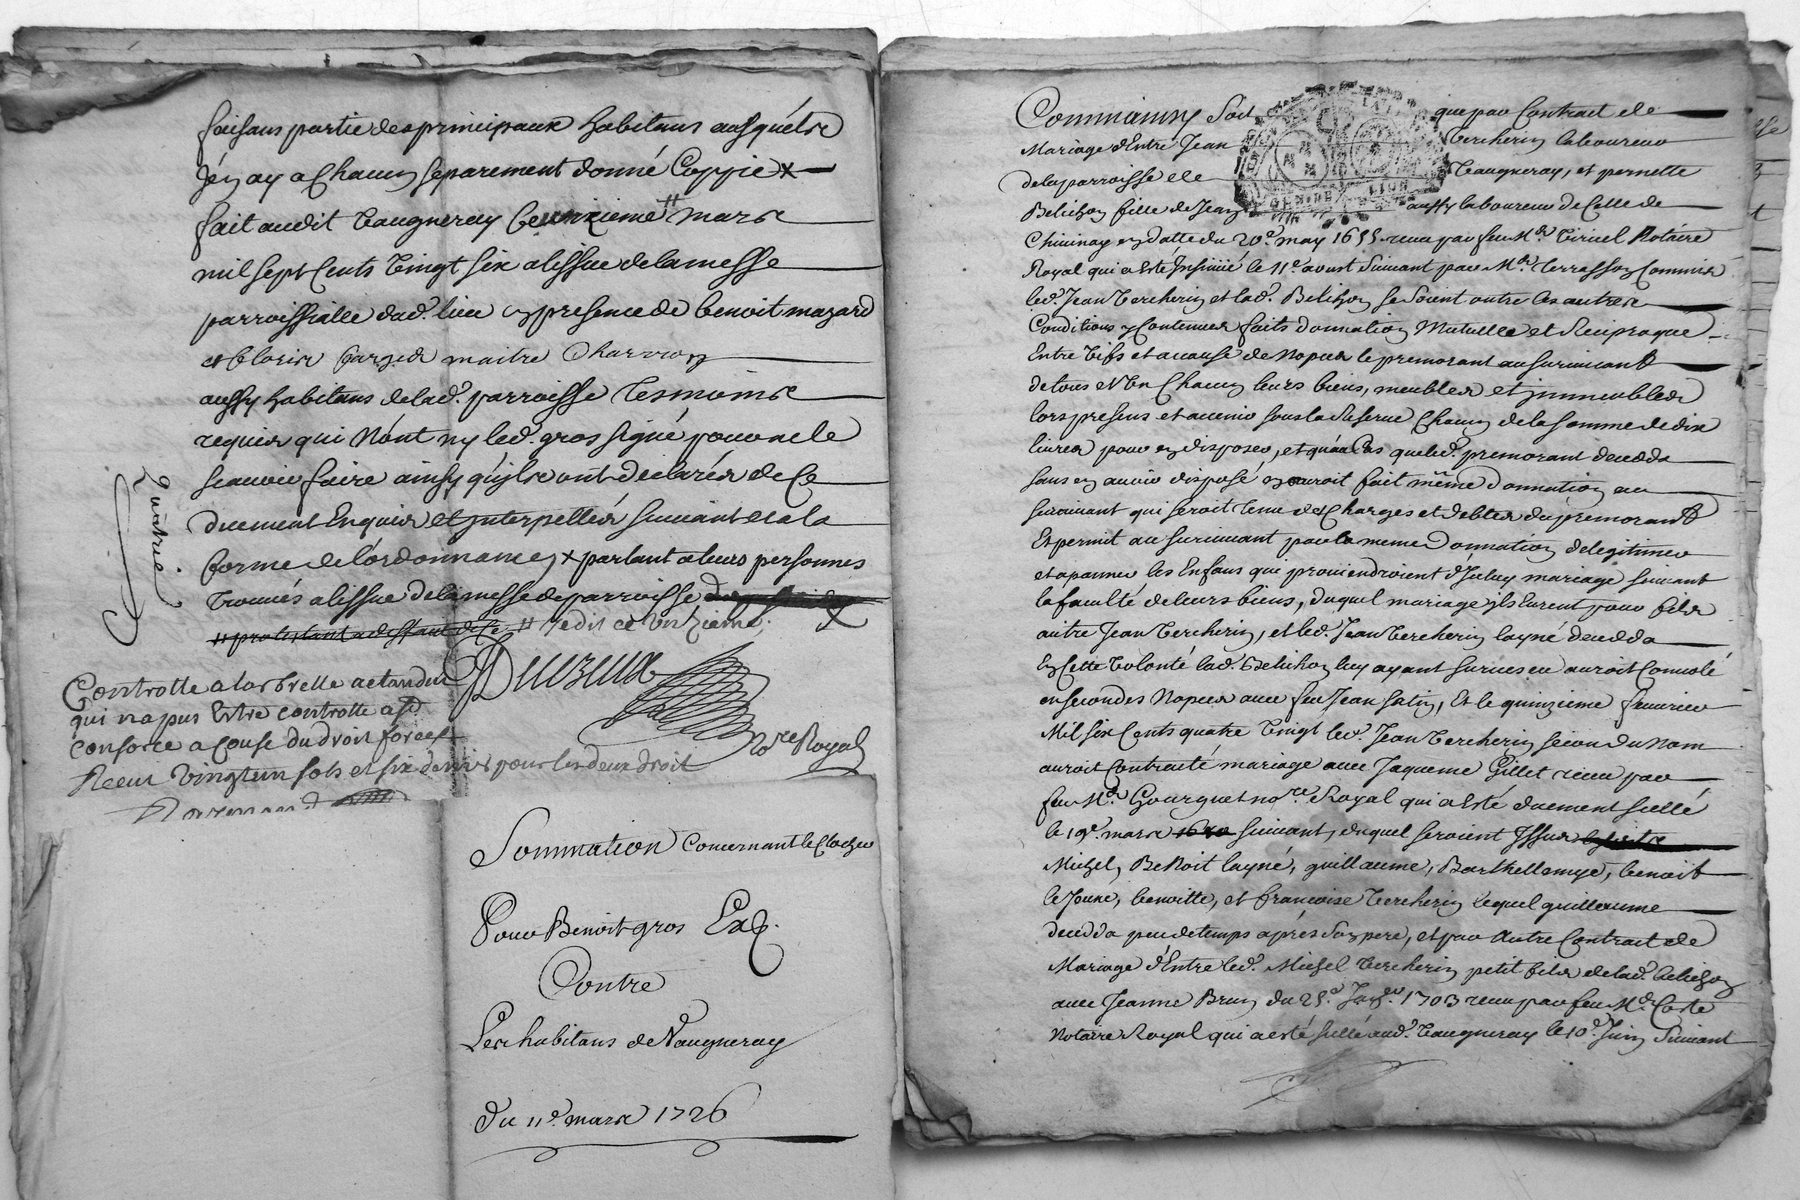 faisans partie des principaux habitans ausquélse
j'én ay a Chacun separement donné Coppie x
fait audit Vaugneray ce unzieme # marse
mil sept Cents Vingt six a lissue de la messe
parroissialle dud. lieu en presence de benoit mazard
et Maitre Charron
aussy habitans de lad. parroisse Tesmoinse
requise qui Nónt ny led. gros signé pour ne le
scavoir faire ainsy quílse ont declarés de Ce
duement Enquis et interpellés suivant et a la
forme de lórdonnance x parlant a leurs personnes
trouvés a lissue de la messe de parroisse
# protestant a deffaut de ce # ledit ce unzieme
quatrie
Duvzuel
Nre Royal
Controlle a larbrelle actandu
qui na pus Estre controlle a
conforce a couse du droit force
Receu Vingt un sols et six deniers pour les deux droit
Sommation Concernant le Clocher
Pour Benoist gros Exp.
Contre
Les habitans de Vaugneray
Du 11e. marse 1726
Comme ainsy Soit que par Contract de
Mariage d'Entre Jean Vercherin laboureur
de la parroisse de Vaugneray, et pernette
Belichon fille de Jean aussy laboureur de Celle de
Chivinay en datte du 20e. may 1655 receu par feu Mr. Tiricel Notáire
Royal qui a esté Insinué le 11e. avust Suivant par Mr. Terrasson Commis
led. Jean Vercherin et lad. Belichon se soient outre les autrese
Conditions y Contenues faits donnation Mutuelle et Reciproque
Entre Vifs et a cause de Nopces le premorant au survivant
de tous et Un Chacun leurs biens, meubles et jmmeubles
lors presens et avenir sous la Reserve Chacun de la somme de dix
livres pour en disposer, et quáu Cas que led. premorant deceda
sans en avoir disposé en auroit fait même donnation au
survivant qui seroit tenu des Charges et debtes du premorant
Et permit au survivant par la meme Donnation de legitimer
et apanner les Enfans que proviendroient d'Iceluy mariage suivant
la faculté de leurs biens, duquel mariage ils Eurent pour fils
autre Jean Vercherin, et led. Jean Vercherin layné deceda
En Cette Volonté lad. Belichon luy ayant survescu auroit Convolé
en secondes Nopces avec feu Jean Satin, Et le quinzieme fevrier
Mil six Cents quatre Vingt led. Jean Vercherin second du Nom
auroit Contracté mariage avec Jaqueme Gillet receu par
feu Mr. Gourguet nore. Royal qui a esté duement scellé
le 19e. marse suivant, duquel seroient Issus
Michel, BeNoit layné, guillaume, Barthellemye, benoit
le Jeune, benoitte, et francoise Vercherin lequel guillaume
deceda peu de temps aprés son pere, et par Autre Contract de
Mariage d'Entre led. Michel Vercherin petit fils de lad. belichon
avec Jeanne Brun du 25e. Janer. 1703 receu par feu Mr. Coste
Notaire Royal qui a esté scellé aud. Vaugneray le 10e. Juin Suivant